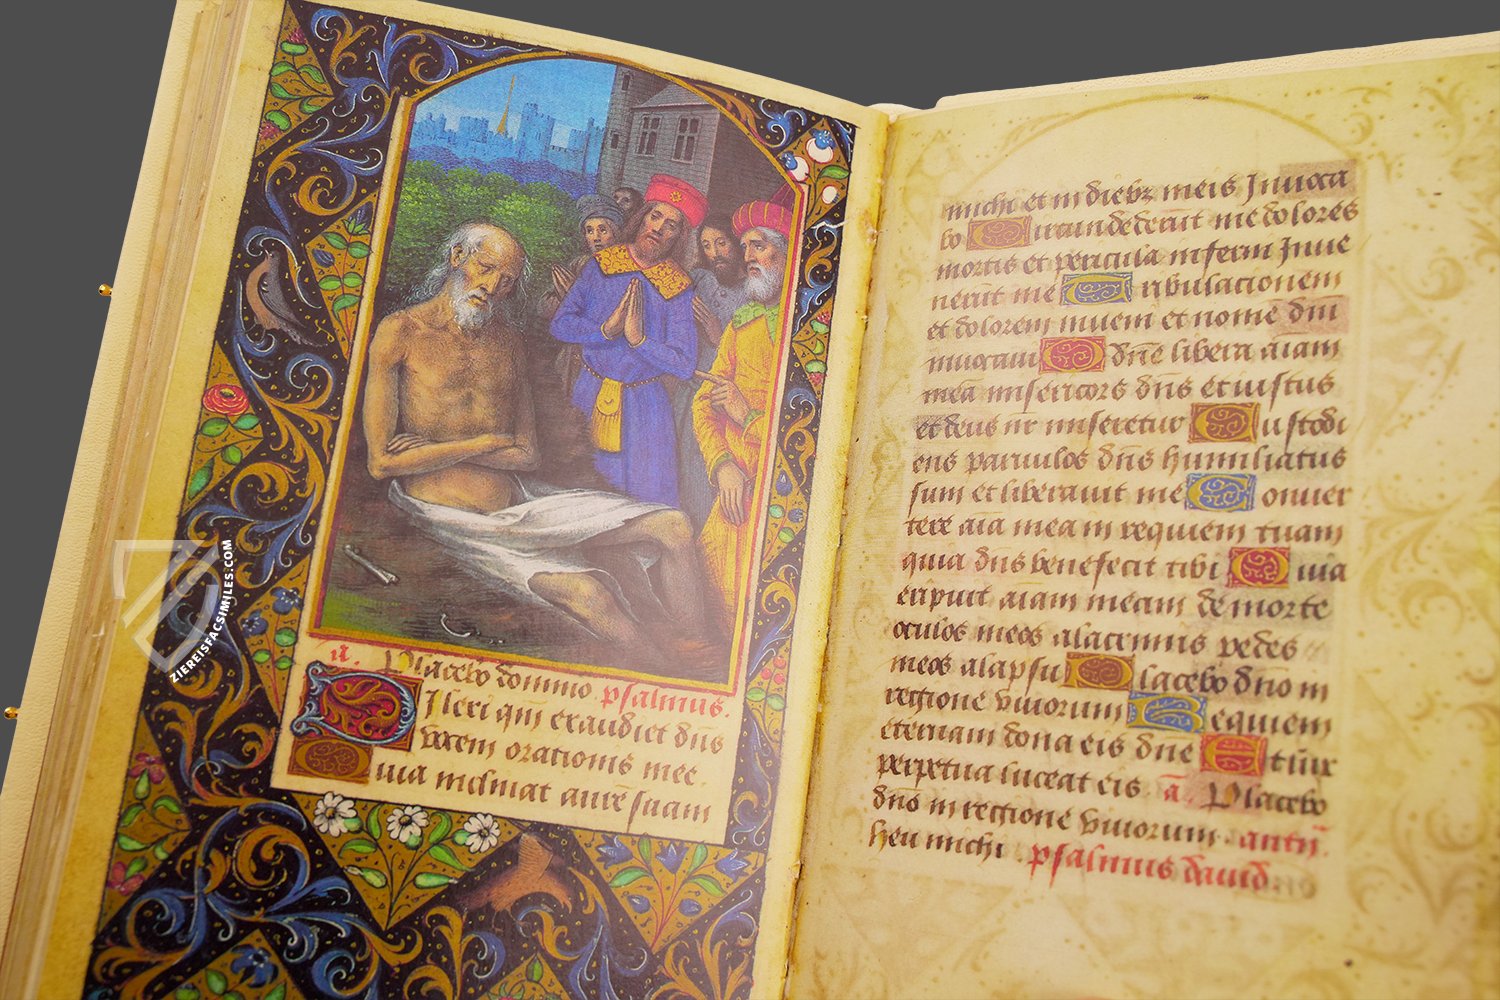 a. Placebo domino psalmus.
Dilexi qm exaudiet dns
vocem orationis mee.
Quia inclinat aurē suam
michi et in diebz meis Inuoca
bo Circundederūt me dolores
mortis et pericula inferni Inue
nerūt me Tribulationem
et dolorem inueni et nomē dni
inuocaui O dn̄e libera aiam
meā misericors dn̄s et iustus
et deus nr̄ miseretur Custodi
ens paruulos dn̄s humiliatus
sum et liberauit me Conuer
tere aīa mea in requiem tuam
quia dn̄s benefecit tibi Quia
eripuit aīam meam de morte
oculos meos a lacrimis pedes
meos a lapsu Placebo dn̄o in
regione viuorum Requiem
eternam dona eis dn̄e Et lūx
perpetua luceat eis a Placebo
dn̄o in regione viuorum antiī.
heu michi. psalmus dauid
ZIEREISFACSIMILES.COM